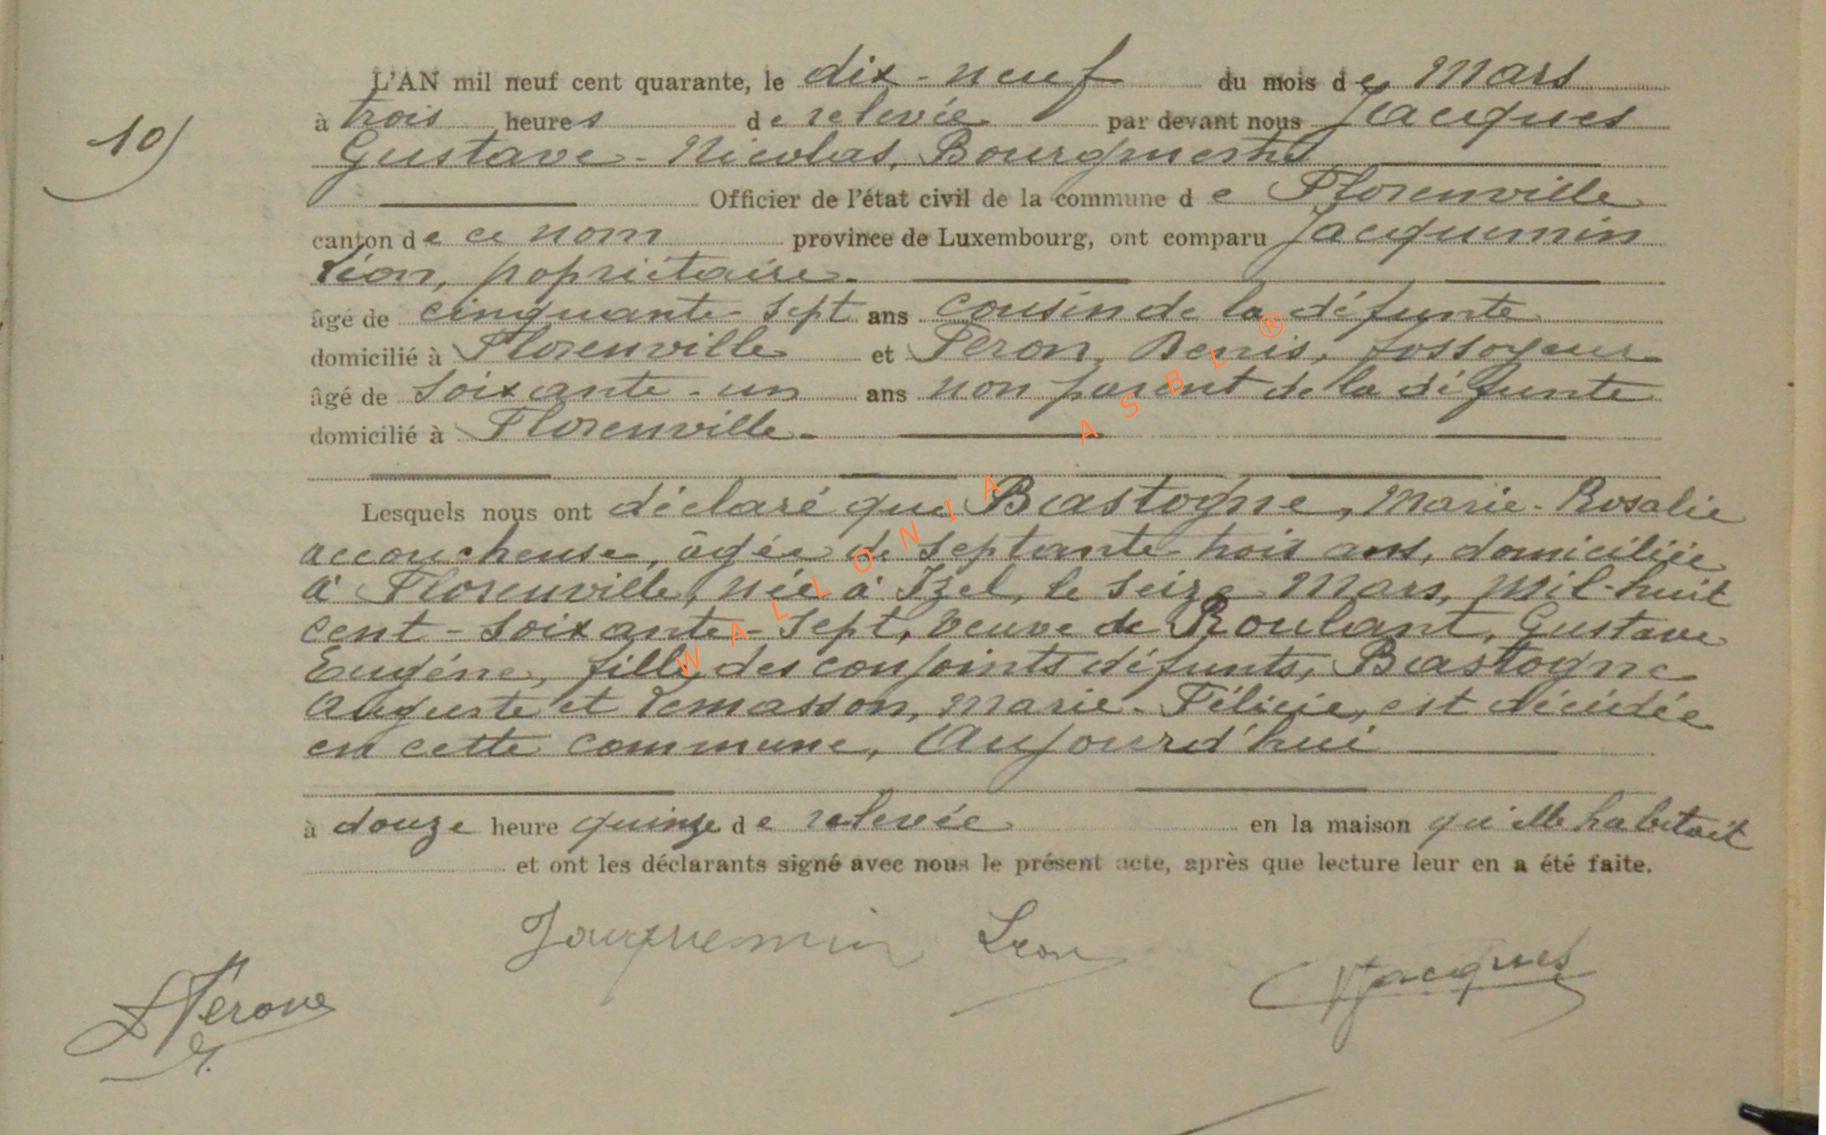 10)
L'AN mil neuf cent quarante, le dix-neuf du mois de Mars
à trois heures de relevée par devant nous Jacques
Gustave-Nicolas, Bourgmestre
Officier de l'état civil de la commune de Florenville
canton de ce nom province de Luxembourg, ont comparu Jacquemin
Léon, popriétaire.
âgé de cinquante-sept ans cousin de la défunte
domicilié à Florenville et Péron, Denis, fossoyeur
âgé de soixante-un ans non parent de la défunte
domicilié à Florenville.
Lesquels nous ont déclaré que Bastogne, Marie-Rosalie
accoucheuse, âgée de septante trois ans, domiciliée
à Florenville, née à Izel, le seize Mars, mil-huit
cent-soixante-sept, veuve de Roulant, Gustave
Eugéne, fille des conjoints défunts, Bastogne
Auguste et Lemasson, Marie-Félicie, est décédée
en cette commune, Aujourd'hui
à douze heure quinze de relevée en la maison qu'elle habitait
et ont les déclarants signé avec nous le présent acte, après que lecture leur en a été faite.
Jacquemin Léon
Jacques
Pérone
WALLONIA ASBL ®